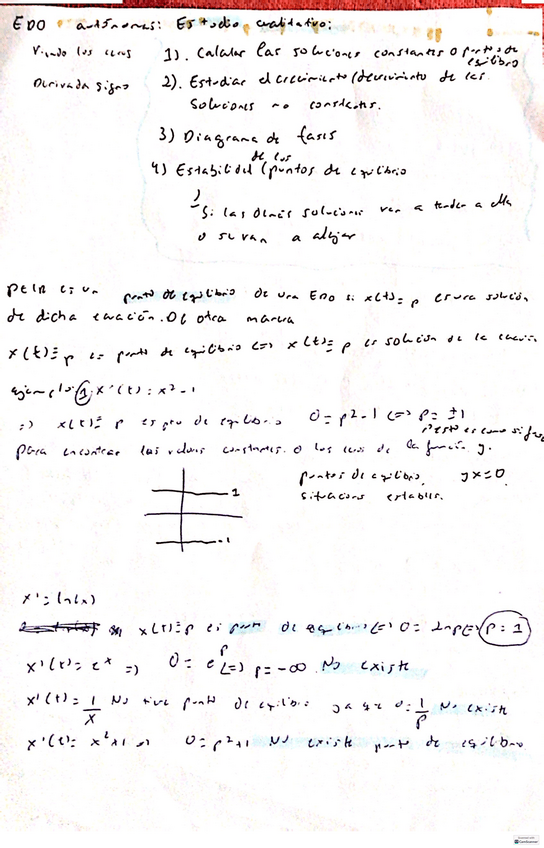 EDO autónomas: Estudio cualitativo:
Viendo los ceros 1). Calcular las soluciones constantes o puntos de equilibrio
Derivada signo 2). Estudiar el crecimiento/decrecimiento de las
soluciones no constantes.
3) Diagrama de fases
4) Estabilidad de los puntos de equilibrio
Si las demás soluciones van a tender a ella
o se van a alejar
p∈ℝ es un punto de equilibrio de una EDO si x(t)≡p es una solución
de dicha ecuación. De otra manera
x(t)≡p es punto de equilibrio <=> x(t)≡p es solución de la ecuación
ejemplo: 1. x'(t) = x²-1
=> x(t)≡p es pto de equilibrio 0 = p²-1 <=> p = ±1
esto es como si
para encontrar los valores constantes o los ceros de la función y.
puntos de equilibrio, yx=0.
situaciones estables.
1
-1
x' = ln(x)
x(t)≡p es punto de equilibrio <=> 0 = Lnp <=> p=1
x'(t) = e^x => 0 = e^p <=> p = -∞ No existe
x'(t) = 1/x No tiene punto de equilibrio ya que 0 = 1/p No existe
x'(t) = x²+1 => 0 = p²+1 No existe punto de equilibrio
CamScanner